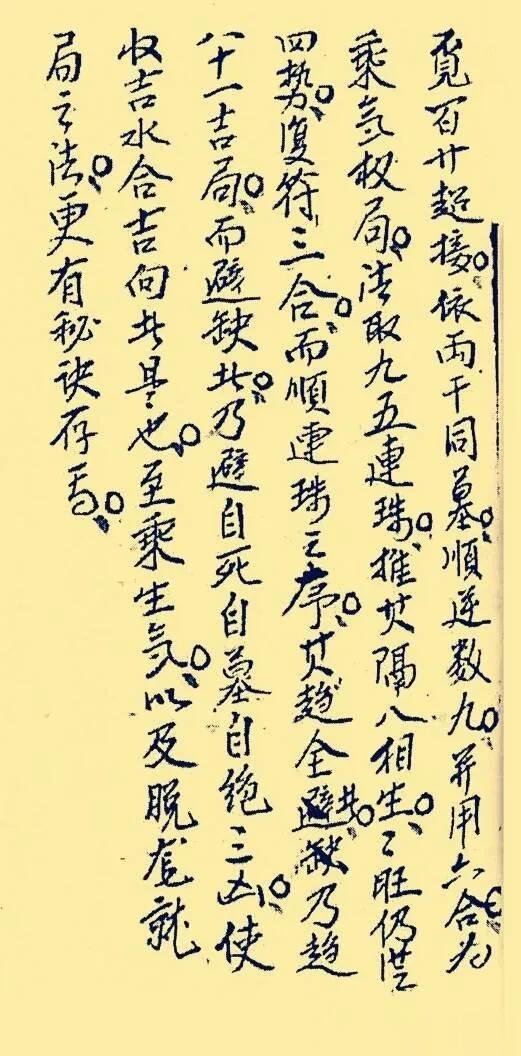 覓百廿超接。依両干同墓。順逆数九。并用六合为
乘氣权局。法取九五連珠。推其隔八相生。々旺仍從
四势。復符三合。而順連珠之序。其趋全避缺者。乃趋
八十一吉局。而避缺者。乃避自死自墓自绝三凶。使
收吉水合吉向者是也。至乘生氣。以及脱龙就
局之法。更有秘诀存焉。